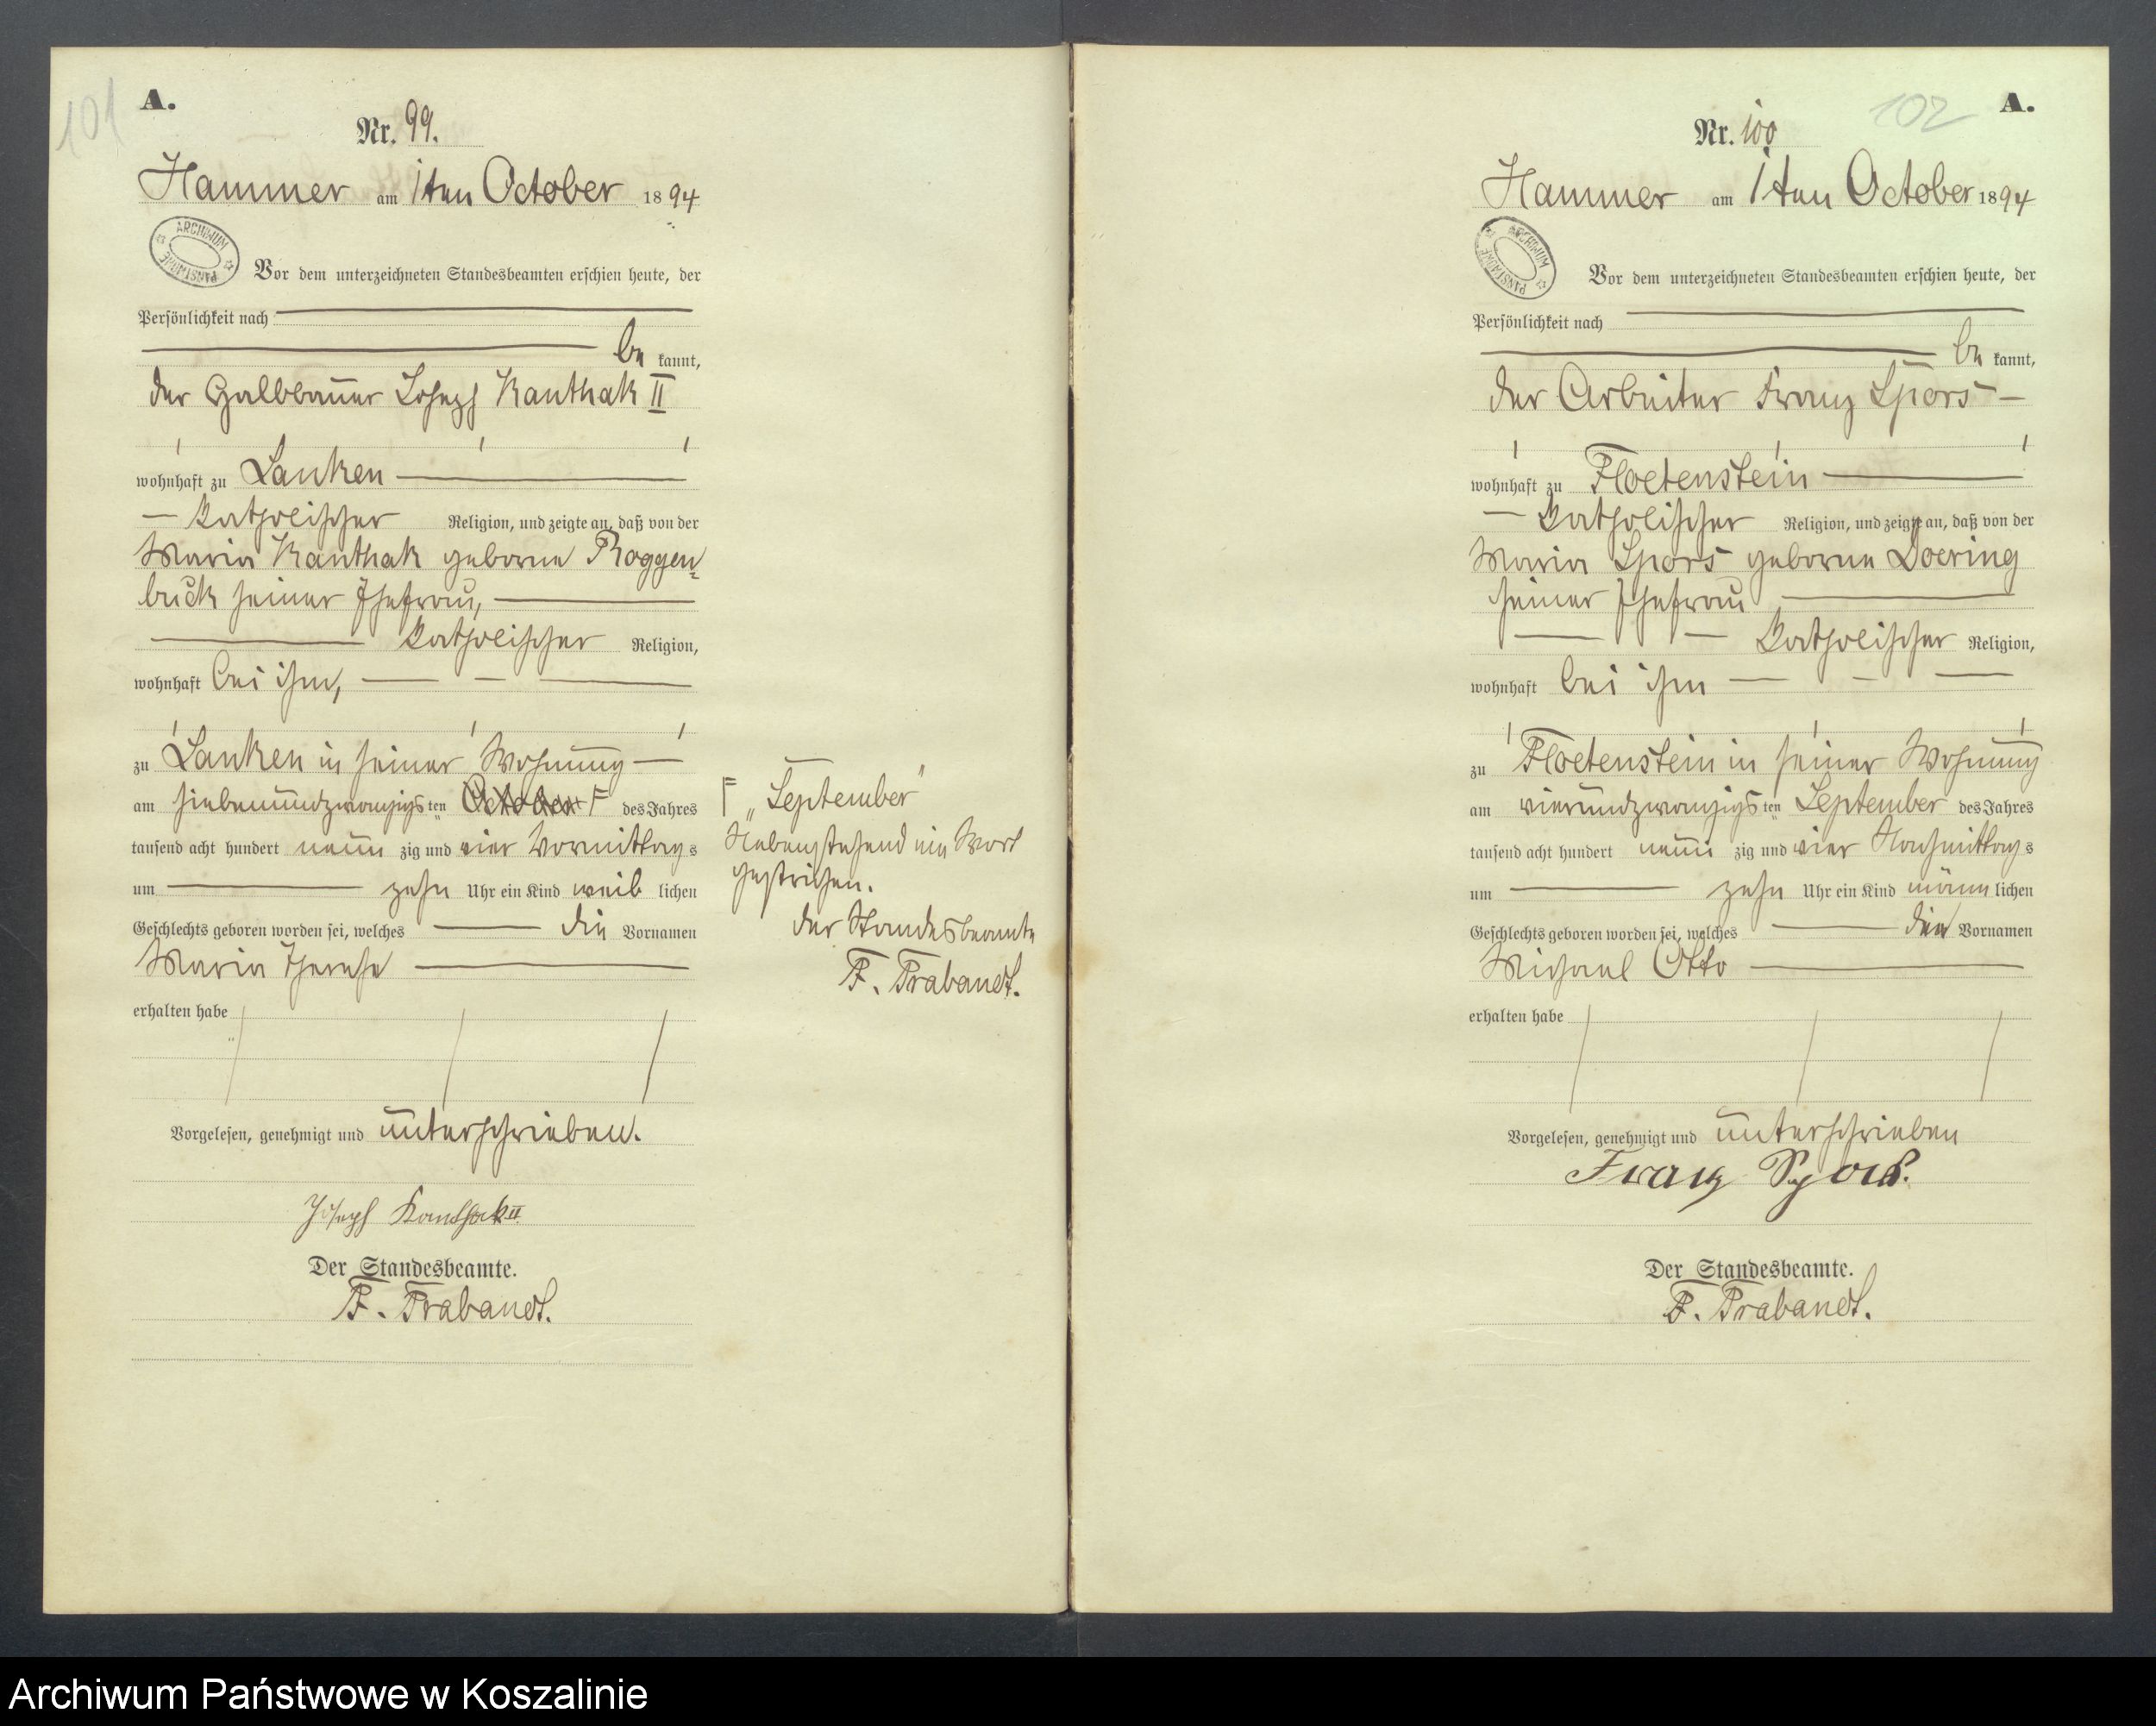 101
A.
Nr. 99.
Hammer am 1ten October 1894
ARCHIWUM PAŃSTWOWE
Vor dem unterzeichneten Standesbeamten erschien heute, der
Persönlichkeit nach
be kannt,
der Halbbauer Joseph Kanthak II
wohnhaft zu Lanken
katholischer Religion, und zeigte an, daß von der
Maria Kanthak geborne Roggen-
buck seiner Ehefrau,
katholischer Religion,
wohnhaft bei ihm,
zu Lanken in seiner Wohnung
am siebenundzwanzigsten October F des Jahres
tausend acht hundert neun zig und vier Vormittags
um zehn Uhr ein Kind weib lichen
Geschlechts geboren worden sei, welches die Vornamen
Maria Therese
erhalten habe
Vorgelesen, genehmigt und unterschrieben.
Joseph Kanthak II
Der Standesbeamte.
F. Trabandt.
F „September“
Nebenstehend ein Wort
gestrichen.
der Standesbeamte
F. Trabandt.
102
A.
Nr. 100
Hammer am 1ten October 1894
ARCHIWUM PAŃSTWOWE
Vor dem unterzeichneten Standesbeamten erschien heute, der
Persönlichkeit nach
be kannt,
der Arbeiter Franz Spors
wohnhaft zu Floetenstein
katholischer Religion, und zeigte an, daß von der
Maria Spors geborne Doering
seiner Ehefrau
katholischer Religion,
wohnhaft bei ihm
zu Floetenstein in seiner Wohnung
am vierundzwanzigsten September des Jahres
tausend acht hundert neun zig und vier Nachmittags
um zehn Uhr ein Kind männ lichen
Geschlechts geboren worden sei, welches den Vornamen
Michael Otto
erhalten habe
Vorgelesen, genehmigt und unterschrieben
Franz Spors.
Der Standesbeamte.
F. Trabandt.
Archiwum Państwowe w Koszalinie